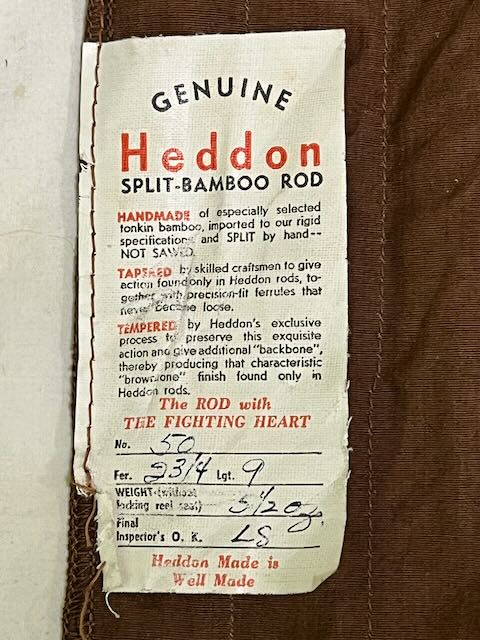 GENUINE
Heddon
SPLIT-BAMBOO ROD
HANDMADE of especially selected
tonkin bamboo, imported to our rigid
specifications and SPLIT by hand--
NOT SAWED.
TAPERED by skilled craftsmen to give
action found only in Heddon rods, to-
gether with precision-fit ferrules that
never become loose.
TEMPERED by Heddon's exclusive
process to preserve this exquisite
action and give additional "backbone",
thereby producing that characteristic
"browntone" finish found only in
Heddon rods.
The ROD with
THE FIGHTING HEART
No. 50
Fer. 23/4 Lgt. 9
WEIGHT (without
locking reel seat) 5 1/2 oz.
Final
Inspector's O. K. LS
Heddon Made is
Well Made